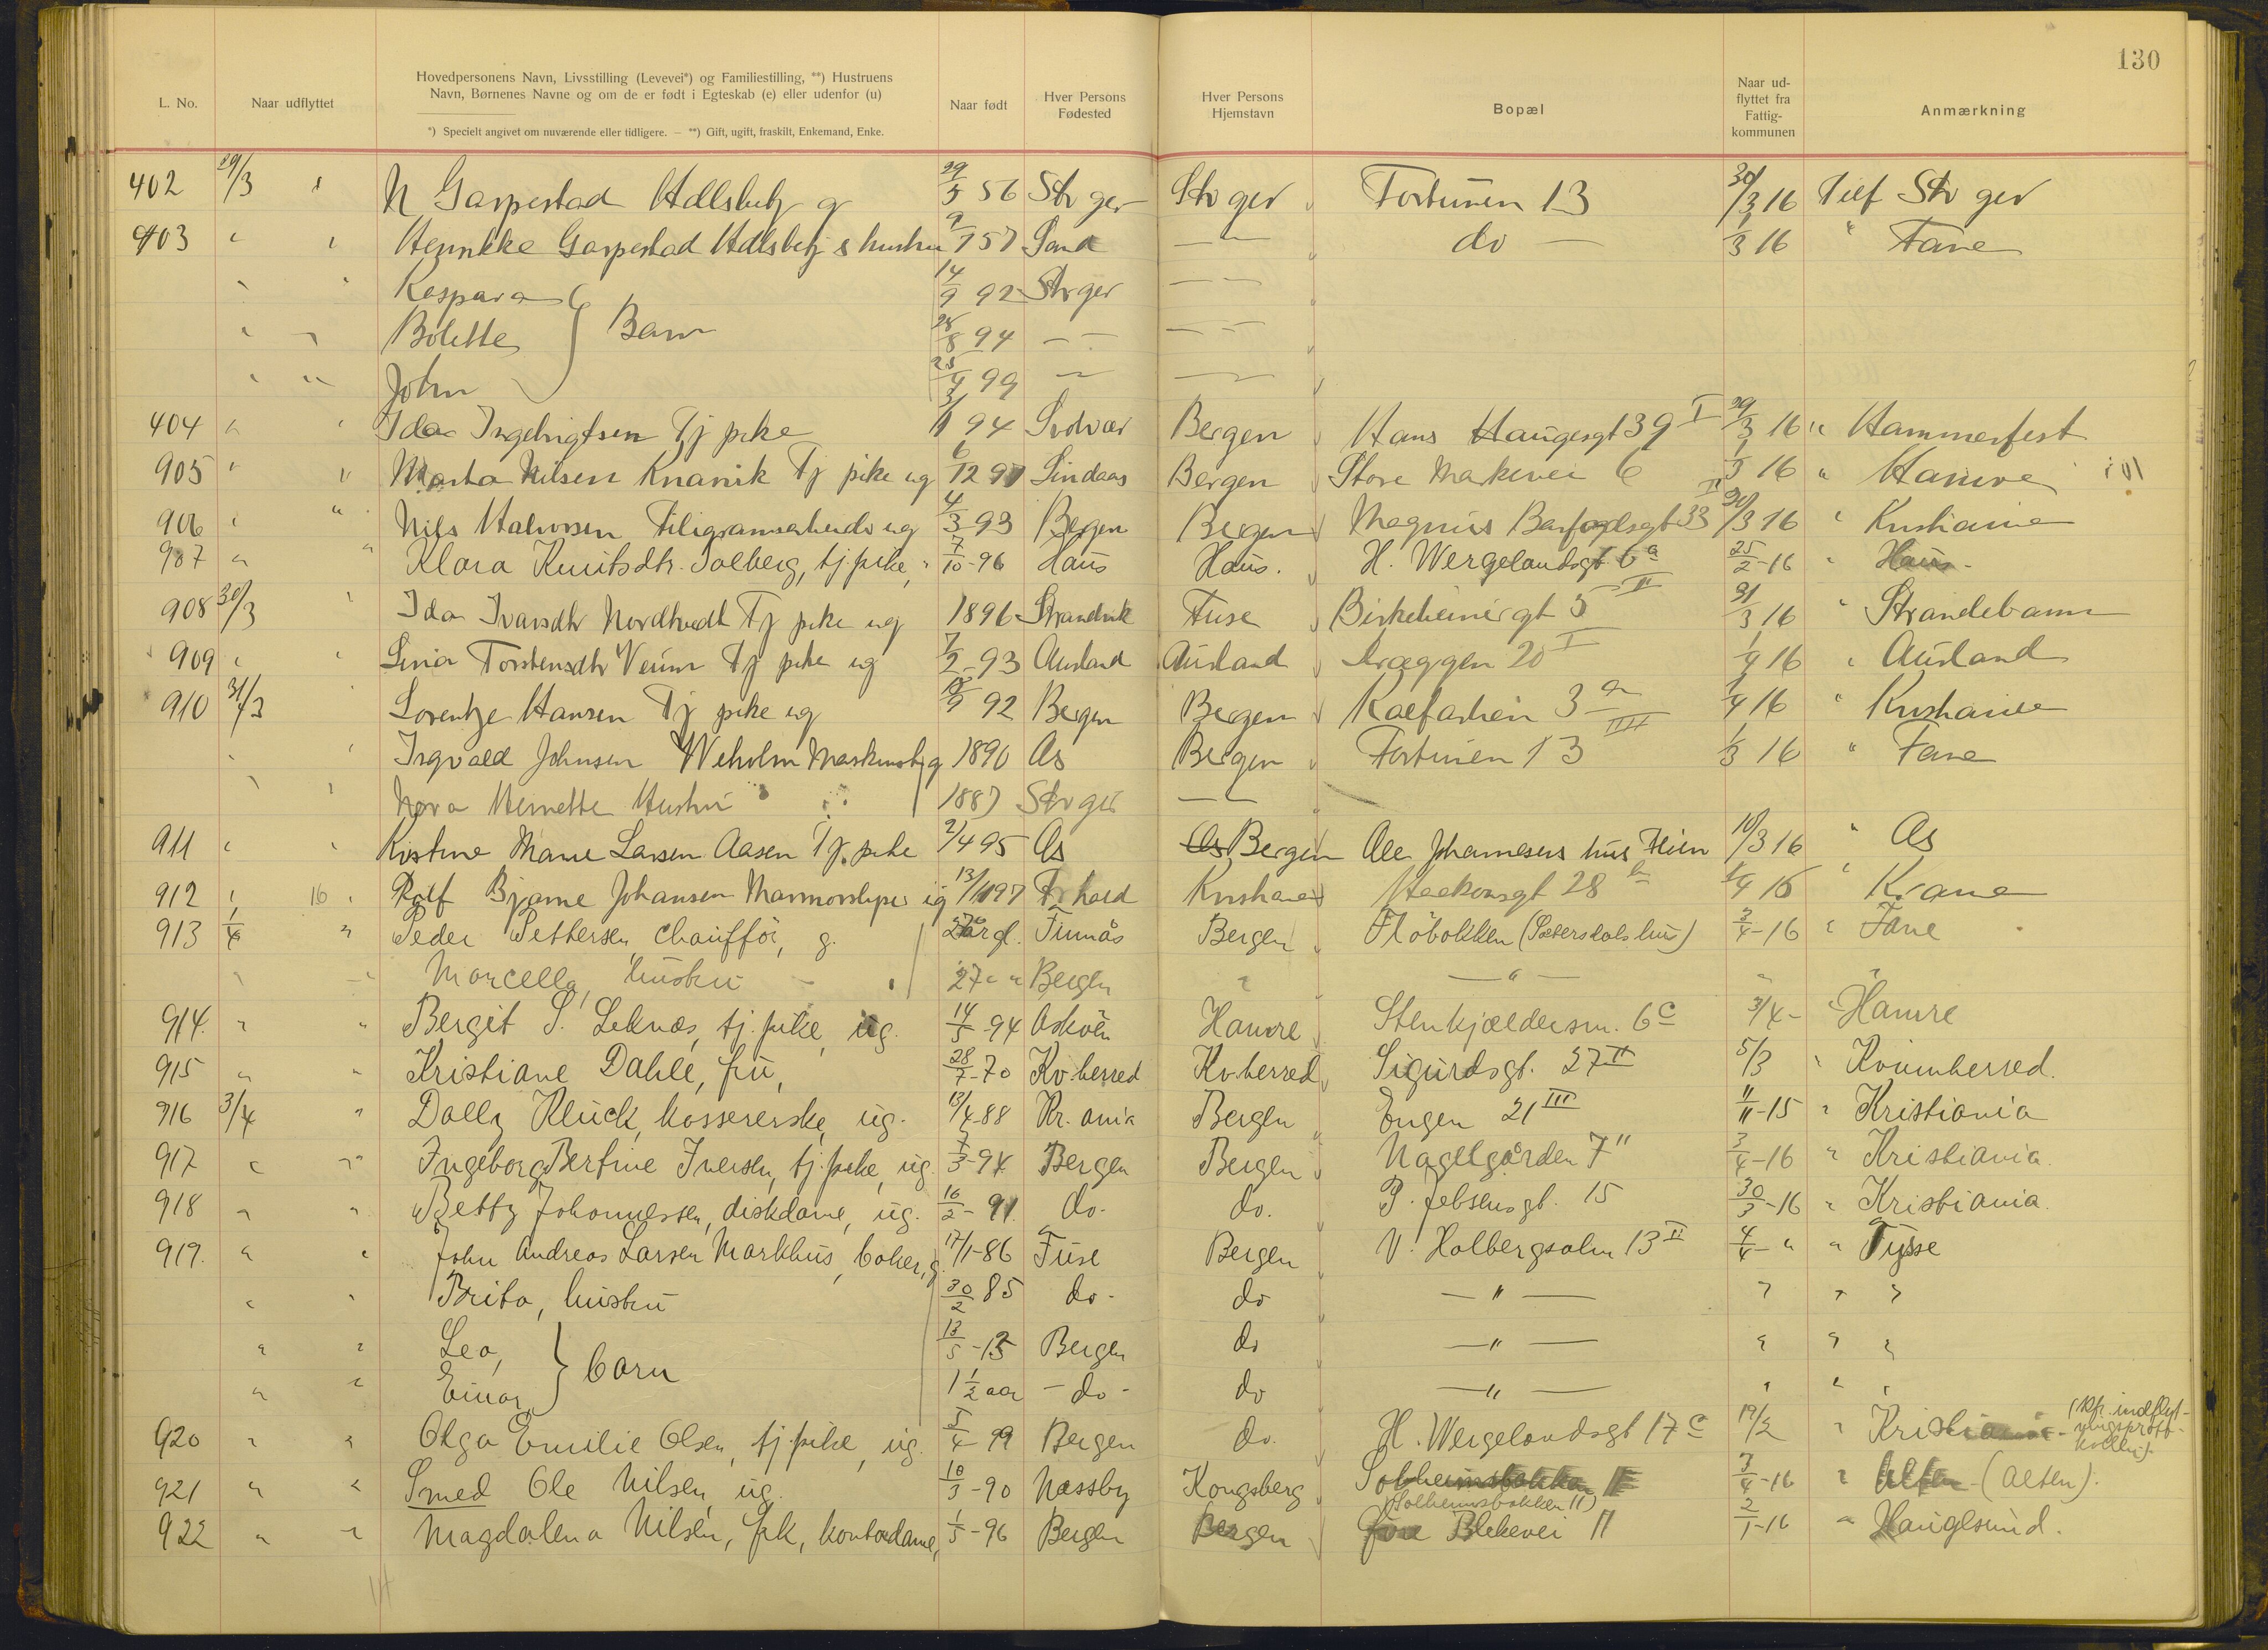 130
L. No.
Naar udflyttet
Hovedpersonens Navn, Livsstilling (Levevei*) og Familiestilling, **) Hustruens
Navn, Børnenes Navne og om de er født i Egteskab (e) eller udenfor (u)
*) Specielt angivet om nuværende eller tidligere. — **) Gift, ugift, fraskilt, Enkemand, Enke.
Naar født
Hver Persons
Fødested
Hver Persons
Hjemstavn
Bopæl
Naar ud-
flyttet fra
Fattig-
kommunen
Anmærkning
402 29/3 " N Garpestad g 56 Stvger Stvger Fortunen 13 30/3 16 Stvger
403 " " Garpestad hustru 57 Sand — " — do — 1/3 16 " Fane
" " Kaspara 14/9 92 Stvger — " —
" " Bolette } Barn 28/8 94 — " — — " —
" " John 99 — " — — " —
404 " " Ida Ingebrigtsen Tj pike 94 Svolvær Bergen Hans Haugesgt 39 I 29/3 16 " Hammerfest
905 " " Marta Nilsen Knarvik Tj pike ug 6/12 97 Lindaas Bergen Store Markevei 6 1/3 16 " Hamre
906 " " Nils Halvorsen ug 4/3 93 Bergen Bergen Magnus Barfodsgt 33 II 30/3 16 " Kristiania
907 " " Klara Knutsdtr. Solberg, tj.pike, " 7/10-96 Haus Haus. H. Wergelandsgt 6a 25/2-16 " Haus-
908 30/3 " Ida Ivarsdtr Nordtvedt Tj pike ug 1896 Strandvik Fuse Birkebeinergt 5 II 31/3 16 " Strandebarm
909 " " Lina Torstensdtr Tj pike ug 7/2-93 Aurland Aurland Dræggen 20 I 1/4 16 " Aurland
910 31/3 " Lorentze Hansen Tj pike ug 92 Bergen Bergen Kalfarlien 3a IIII 1/4 16 " Kristiania
" " Ingvald Johnsen g 1890 As Bergen Fortunen 13 1/3 16 " Fane
" " Nora Hustru 1887 Stvger — " —
911 " " Kristine Marie Larsen Aasen Tj. pike 2/4 95 As As Bergen Ole Johannesens hus 10/3 16 " As
912 " 16 " Rolf Bjarne Johansen Marmorsliper ug 13/11 97 Kristiania Haakonsgt 28 b 1/4 16 " Krania
913 1/4 " Peder Pettersen chauffør, g. Finnås Bergen Fløbakken (Sætersdals hus) 3/4-16 " Fane
" " Marcella, hustru 27 " " Bergen " — " — " "
914. " " Bergit S. Leknes, tj.pike, ug. 14/5-94 Askvøll Hamre Stenkjældersm. 6c 3/4- " Hamre
915 " " Kristiane Dahle, fru, 28/7-70 Kv.herred Kv.herred Sigurdsgt. 27 II 5/3 " Kvinnherred.
916 3/4 " Dolly Kluck, kassererske, ug. 13/4-88 Kr.ania Bergen Engen 21 III 11/11-15 " Kristiania
917 " " Ingeborg Bertine Iversen, tj.pike, ug. 7/3-94 Bergen Bergen Nagelgården 7" 3/4-16 " Kristiania.
918 " " Betty Johannessen, diskdame, ug. 16/2-91. do. do. P. Jebsensgt. 15 30/3-16 " Kristiania.
919. " " John Andreas Larsen Markhus, baker, g. 17/1-86 Fuse Bergen V. Holbergsalm 13 II 4/4- " " Tysse
" " Brita, hustru 30/2 85 do- do — " — " " "
" " Lea, 13/5- Bergen do — " — " " "
" " Einar, } barn 1 1/2 aar - do - do — " — " " "
920 " " Olga Emilie Olsen, tj.pike, ug. 5/4 99 Bergen do. H. Wergelandsgt 17c 19/2 " Kristiania- (Kfr. indflyt-
ningsproto-
kollen).
921 " " Smed Ole Nilsen, ug. 10/3-90 Næssby Kongsberg Solheimsbakken 11 3/4-16 " Alten (Alten).
(Solheimsbakken 11)
922 " " Magdalena Nilsen, frk, kontordame, 1/5-96 Bergen Bergen Blekevei 11 2/1-16 " Haugesund.